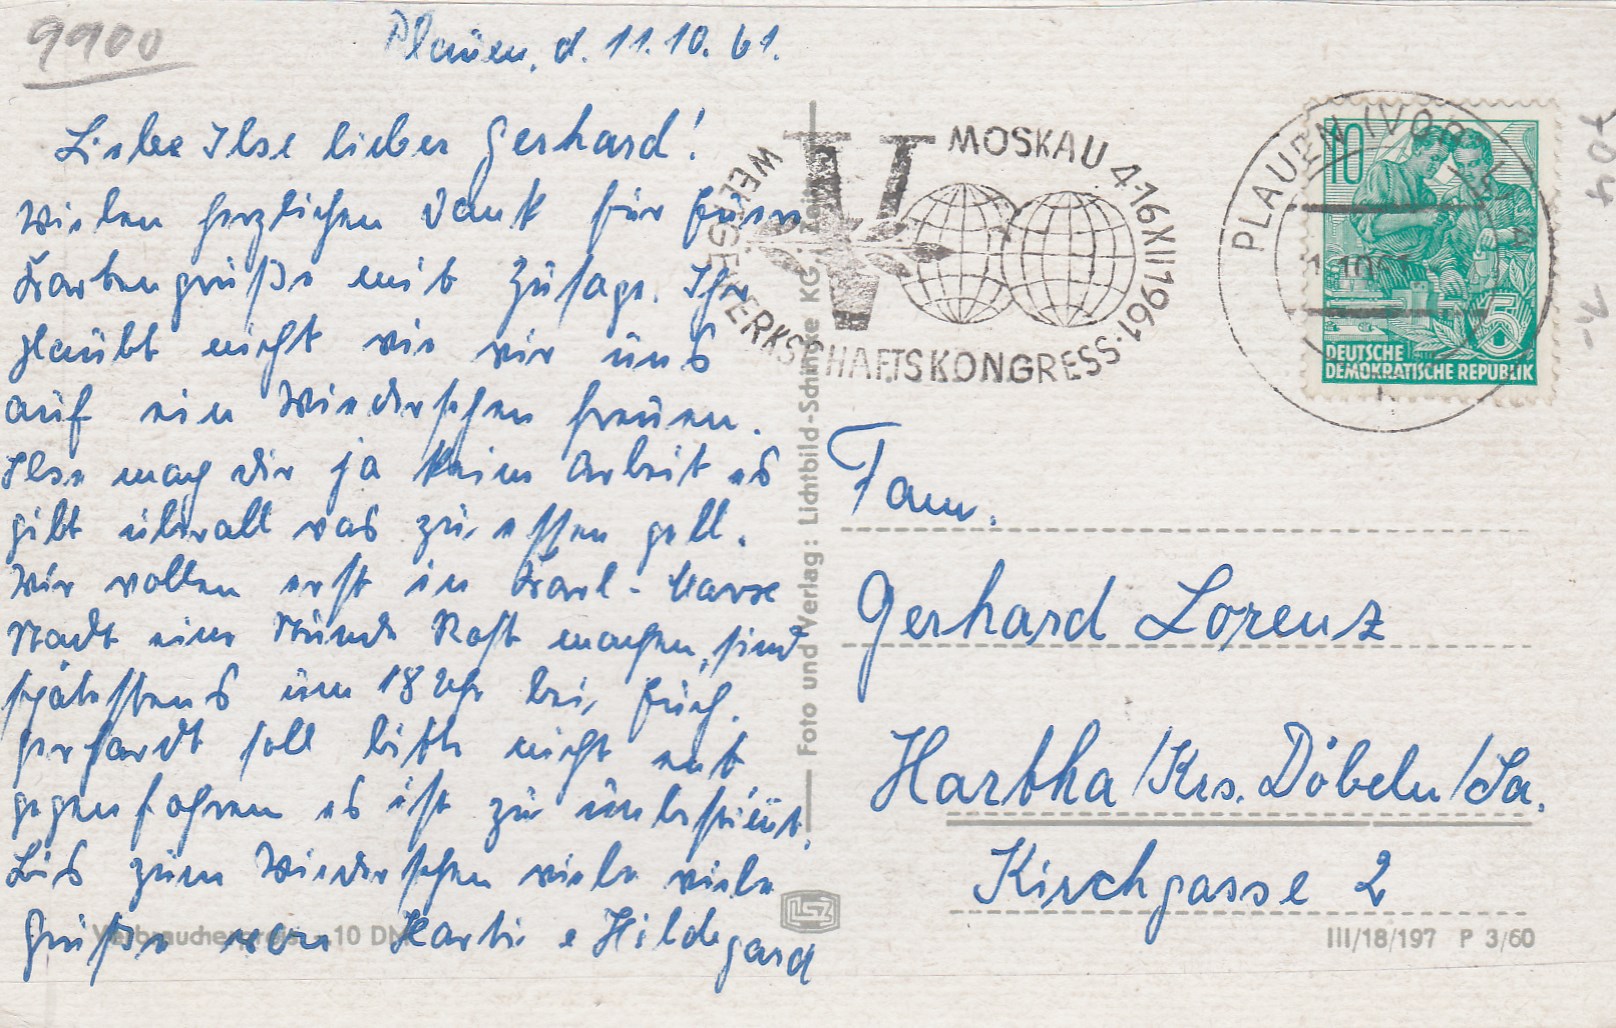 9900
Plauen, d. 11.10.61.
Liebe Ilse lieber Gerhard!
Vielen herzlichen Dank für Euern
Kartengruß mit Zusage. Ihr
glaubt nicht wie wir uns
auf ein Wiedersehen freuen.
Ilse mach dir ja kein Arbeit es
gibt überall was zu essen gell.
Wir wollen erst in Karl-Marx
Stadt eine Stunde Rast machen, sind
spätestens um 18 Uhr bei Euch.
Gerhardt soll bitte nicht ent
gegenfahren es ist zu unbestimt.
Bis zum Wiedersehen viele viele
Grüße von Harti e Hildegard
Verbraucherpreis 10 DM
Foto und Verlag: Lichtbild-Schincke KG,
WELTGEWERKSCHAFTSKONGRESS · MOSKAU 4-16 XII 1961
V
PLAUEN (VOGTL
10
5
DEUTSCHE
DEMOKRATISCHE REPUBLIK
704
Fam.
Gerhard Lorenz
Hartha /Krs. Döbeln /Sa.
Kirchgasse 2
LSZ
III/18/197 P 3/60